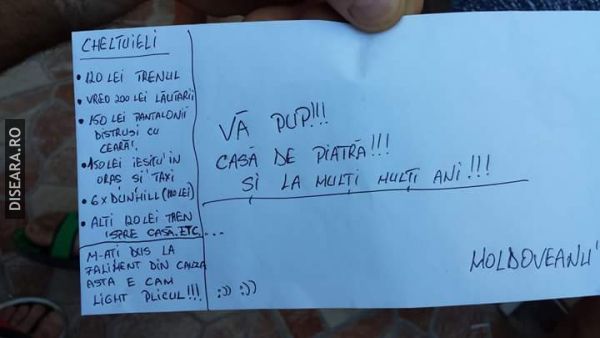 CHELTUIELI
• 120 LEI TRENUL
• VREO 200 LEI LĂUTARII
• 150 LEI PANTALONII
DISTRUSI CU
CEARĂ!
• 150 LEI IESITU' IN
ORAȘ ȘI TAXI
• 6 X DUNHILL (110 LEI)
• ALTI 120 LEI TREN
SPRE CASA. ETC....
M-ATI DUS LA
FALIMENT DIN CAUZA
ASTA E CAM
LIGHT PLICUL!!!
VĂ PUP!!!
CASĂ DE PIATRĂ!!!
ȘI LA MULȚI MULȚI ANI!!!
:)) :))
MOLDOVEANU'
DISEARA.RO